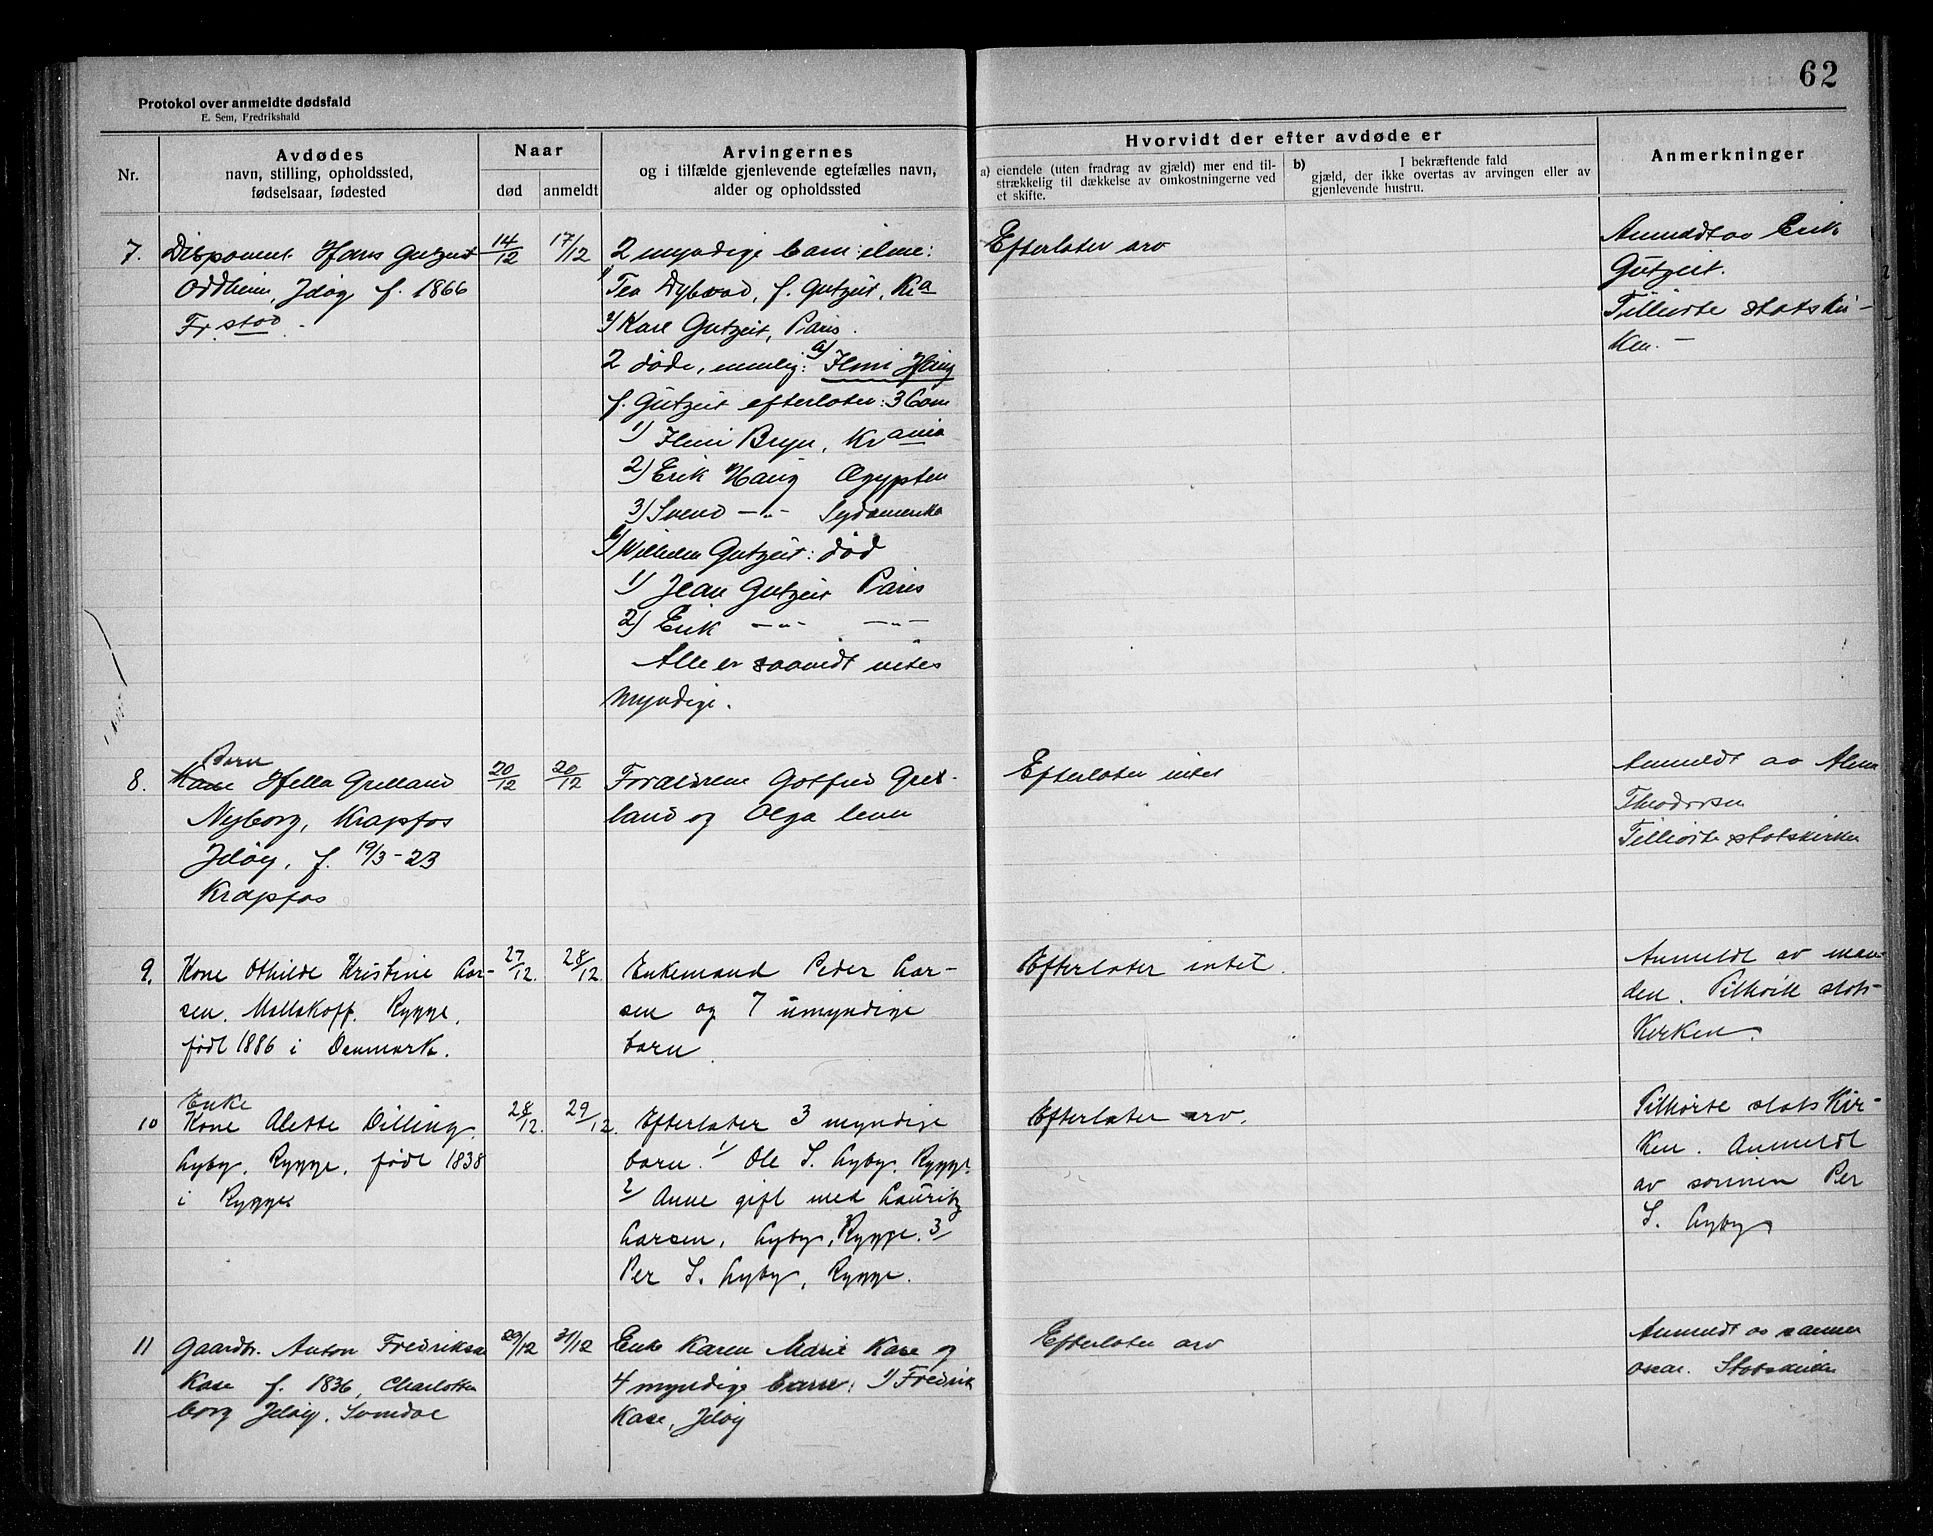 62
Protokol over anmeldte dødsfald
E. Sem, Fredrikshald
Nr.
Avdødes
navn, stilling, opholdssted,
fødselsaar, fødested
Naar
død
anmeldt
Arvingernes
og i tilfælde gjenlevende egtefælles navn,
alder og opholdssted
Hvorvidt der efter avdøde er
a) eiendele (uten fradrag av gjæld) mer end til-
strækkelig til dækkelse av omkostningerne ved
et skifte.
b) I bekræftende fald
gjæld, der ikke overtas av arvingen eller av
gjenlevende hustru.
Anmerkninger
7.
Disponent Hans Gutzeit
Oddheim, Jeløy f. 1866
Fr.stad.
14/12
17/12
2 myndige barn:
1) Tea Dybwad, f. Gutzeit, Kra
2) Kare Gutzeit, Paris.
2 døde, nemlig: a)
f. Gutzeit efterlater: 3 barn
1) Bryn, Krania
2) Erik Haug Ægypten
3) Svend —"— Sydamerika
b) Wilhelm Gutzeit: død
1) Jean Gutzeit Paris
2) Erik —"— —"—
Alle er saavidt vites
myndige.
Efterlater arv
Anmeldt av Erik
Gutzeit.
Tilhørte statskir-
ken. —
8.
Barn
Kone Hella Grelland
Nyborg, Krapfos
Jeløy, f. 19/3-23
Krapfos
20/12
20/12
Forældrene Gotfred Grel-
land og Olga lever
Efterlater intet
Anmeldt av
Theodorsen
Tilhørte statskirken
9.
Kone Othilde Kristine Lar-
sen. Mallakoff. Rygge,
født 1886 i Danmark.
27/12.
28/12.
Enkemand Peder Lar-
sen og 7 umyndige
barn.
Efterlater intet.
Anmeldt av man-
den. Tilhørte stats-
kirken.
10
Enke
Kone Alette Dilling,
Lyby, Rygge, født 1838
i Rygge.
28/12.
29/12.
Efterlater 3 myndige
barn. 1/ Ole S. Lyby, Rygge.
2/ Anne gift med Lauritz
Larsen, Lyby, Rygge. 3/
Per S. Lyby, Rygge.
Efterlater arv.
Tilhørte statskir-
ken. Anmeldt
av sønnen Per
S. Lyby
11
Gaardbr. Anton Fredriksen
Kase f. 1836, Charlotten
borg Jeløy.
29/12
31/12
Enke Karen Marie Kase og
4 myndige barn: 1) Fredrik
Kase, Jeløy
Efterlater arv
Anmeldt av sønnen
Oscar. Statskirken